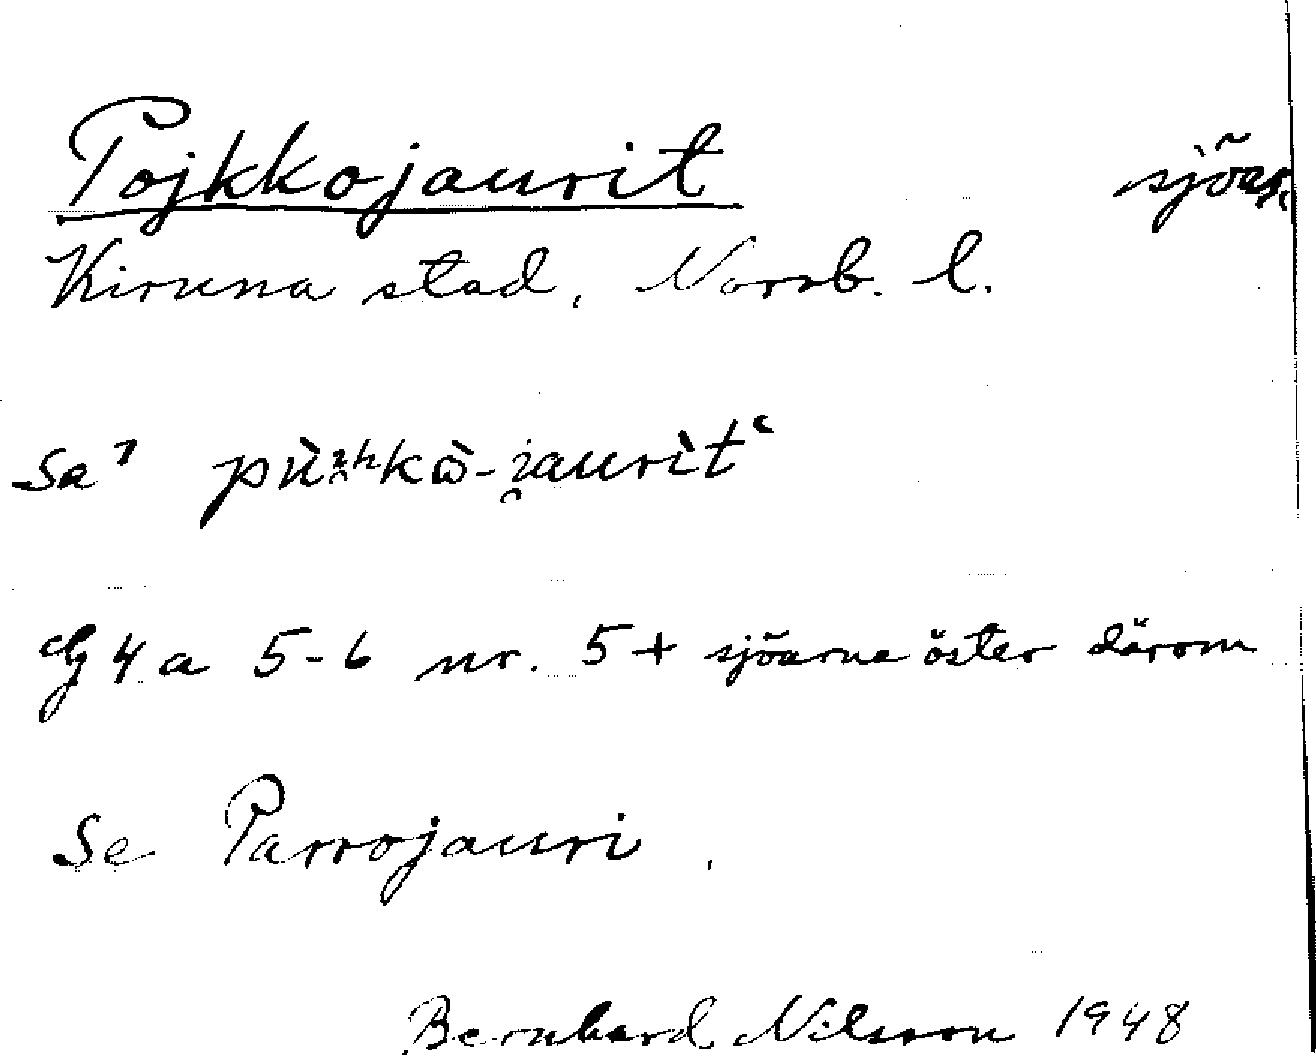 Pojkkojaurit sjöar.
Kiruna stad, Norrb. l.
Sa
G 4 a 5-6 nr. 5 + sjöarna öster därom
Se Parrojauri.
Bernhard Nilsson 1948